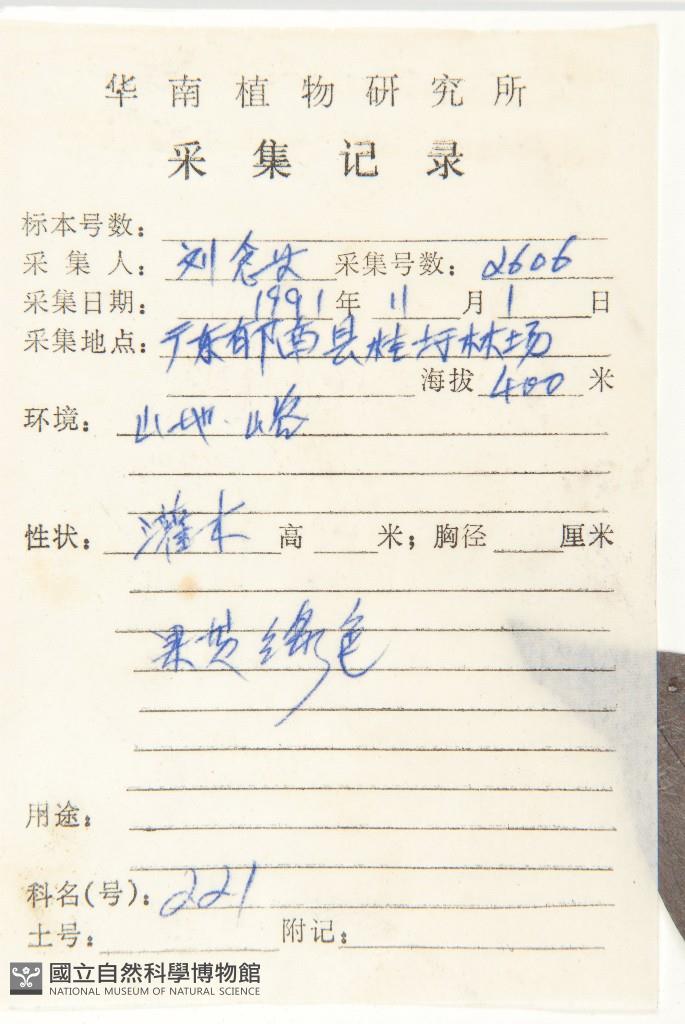 华南植物研究所
采集记录
标本号数:
采集人: 刘念 采集号数: 2606
采集日期: 1991年11月1日
采集地点: 广东郁南县桂圩林场
海拔 400 米
环境: 山地.山谷
性状: 灌木 高 米; 胸径 厘米
果黄绿色
用途:
科名(号): 221
土号: 附记:
國立自然科學博物館
NATIONAL MUSEUM OF NATURAL SCIENCE